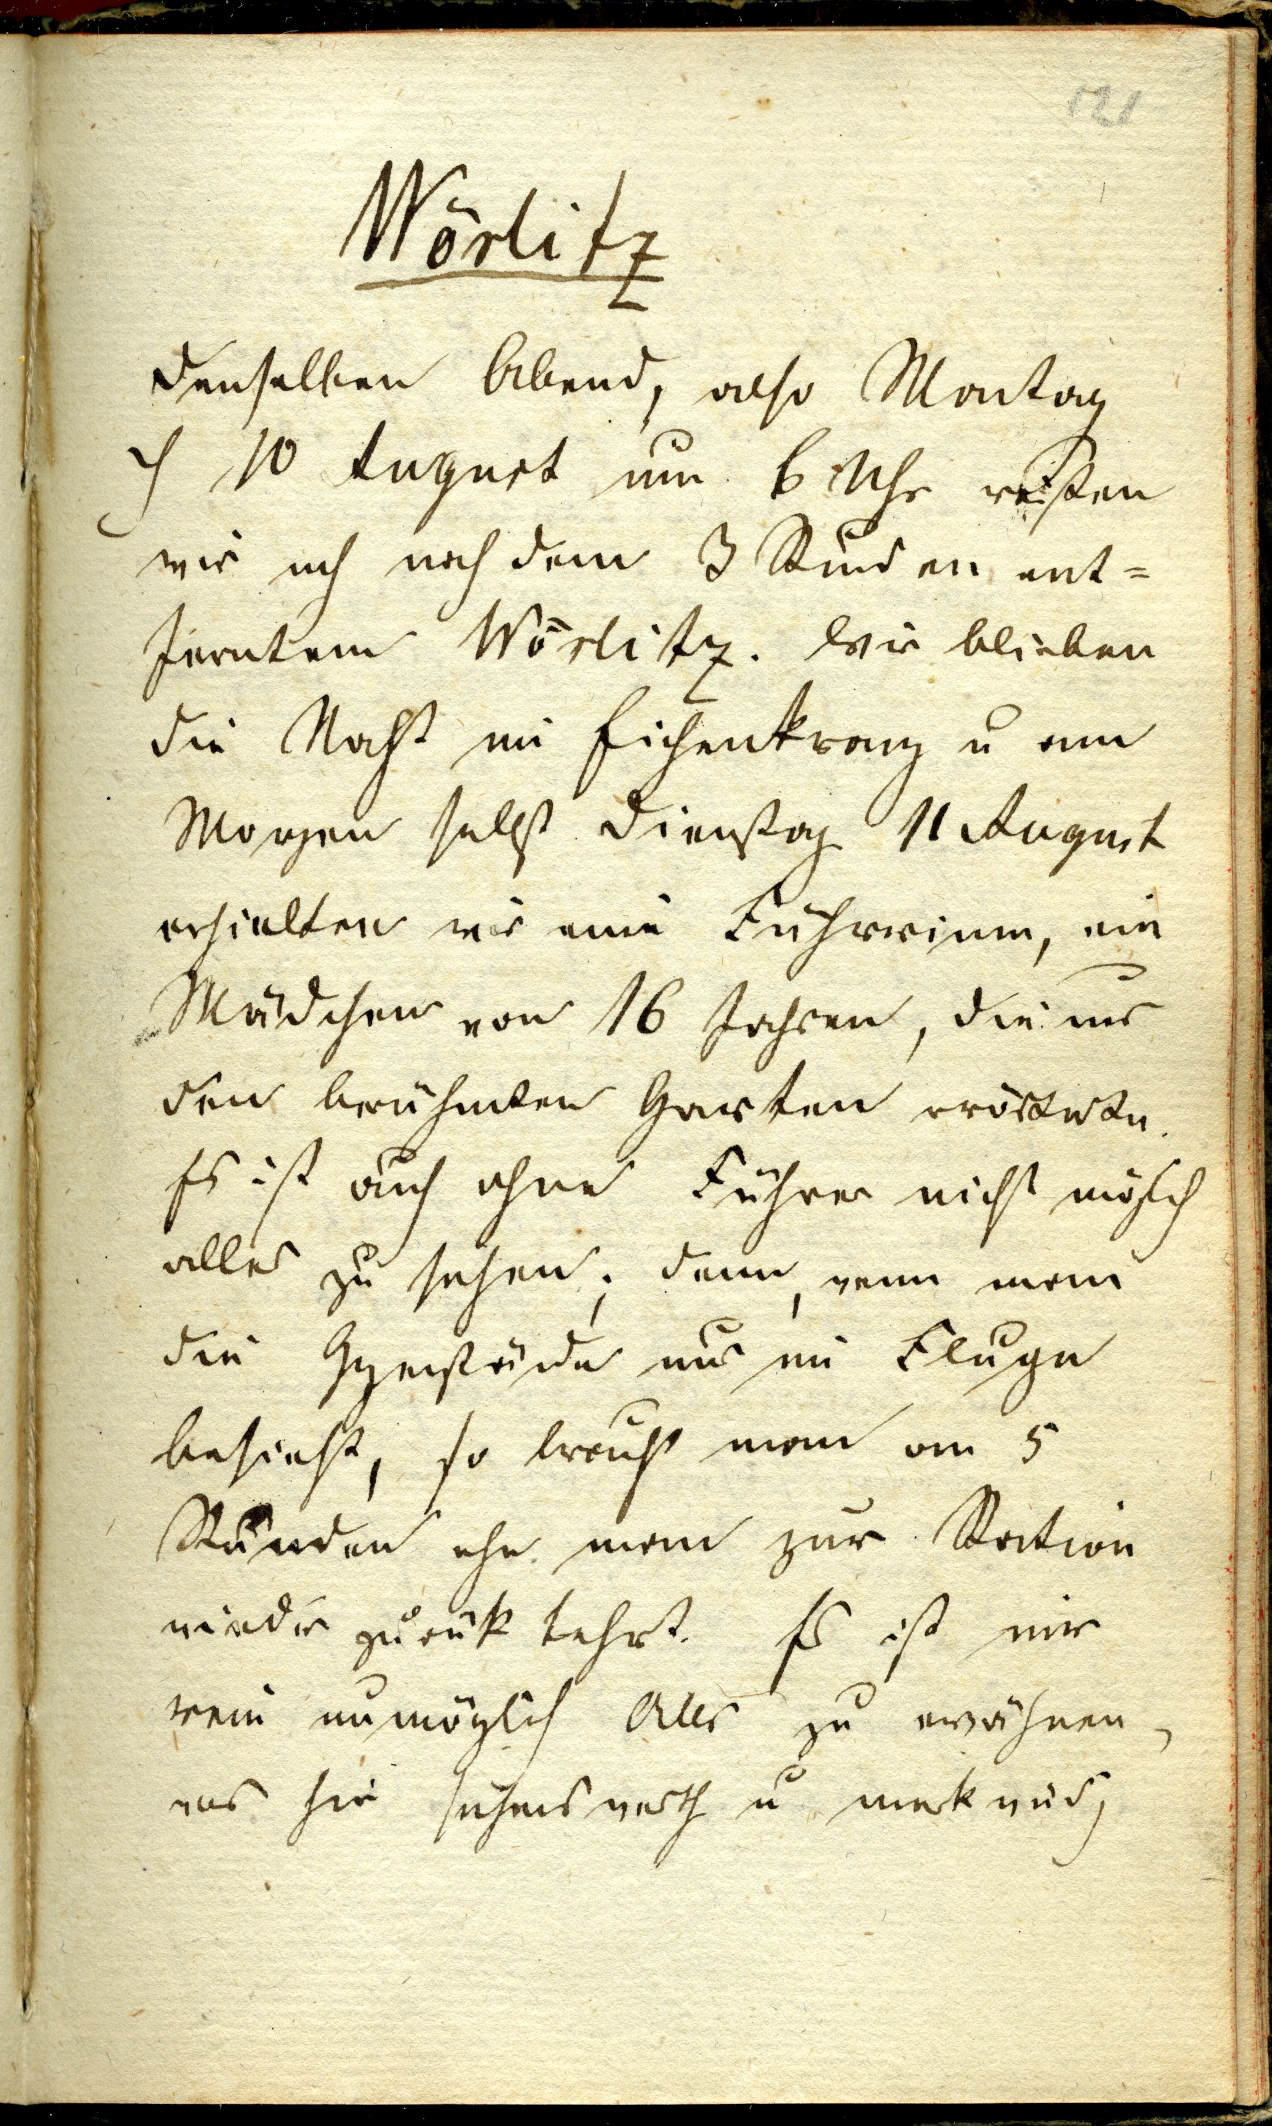 121
Wörlitz
denselben Abend, also Montag
d 10 August um 6 Uhr reisten
wir nach dem 3 Stunden ent=
ferntem Wörlitz. Wir blieben
die Nacht im Eichenkranz u am
Morgen selbst Dienstag 11 August
erhielten wir eine Führerinn, ein
Mädchen von 16 Jahren, die uns
den berühmten Garten
Es ist auch ohne Führer nicht möglich
alles zu sehen; denn, wenn man
die Gegenstände nur im Fluge
besieht, so braucht man an 5
Stunden ehe man zur Station
wieder zurük kehrt. Es ist mir
rein unmöglich Alles zu erwähnen,
was hie sehenswerth u merkwürd